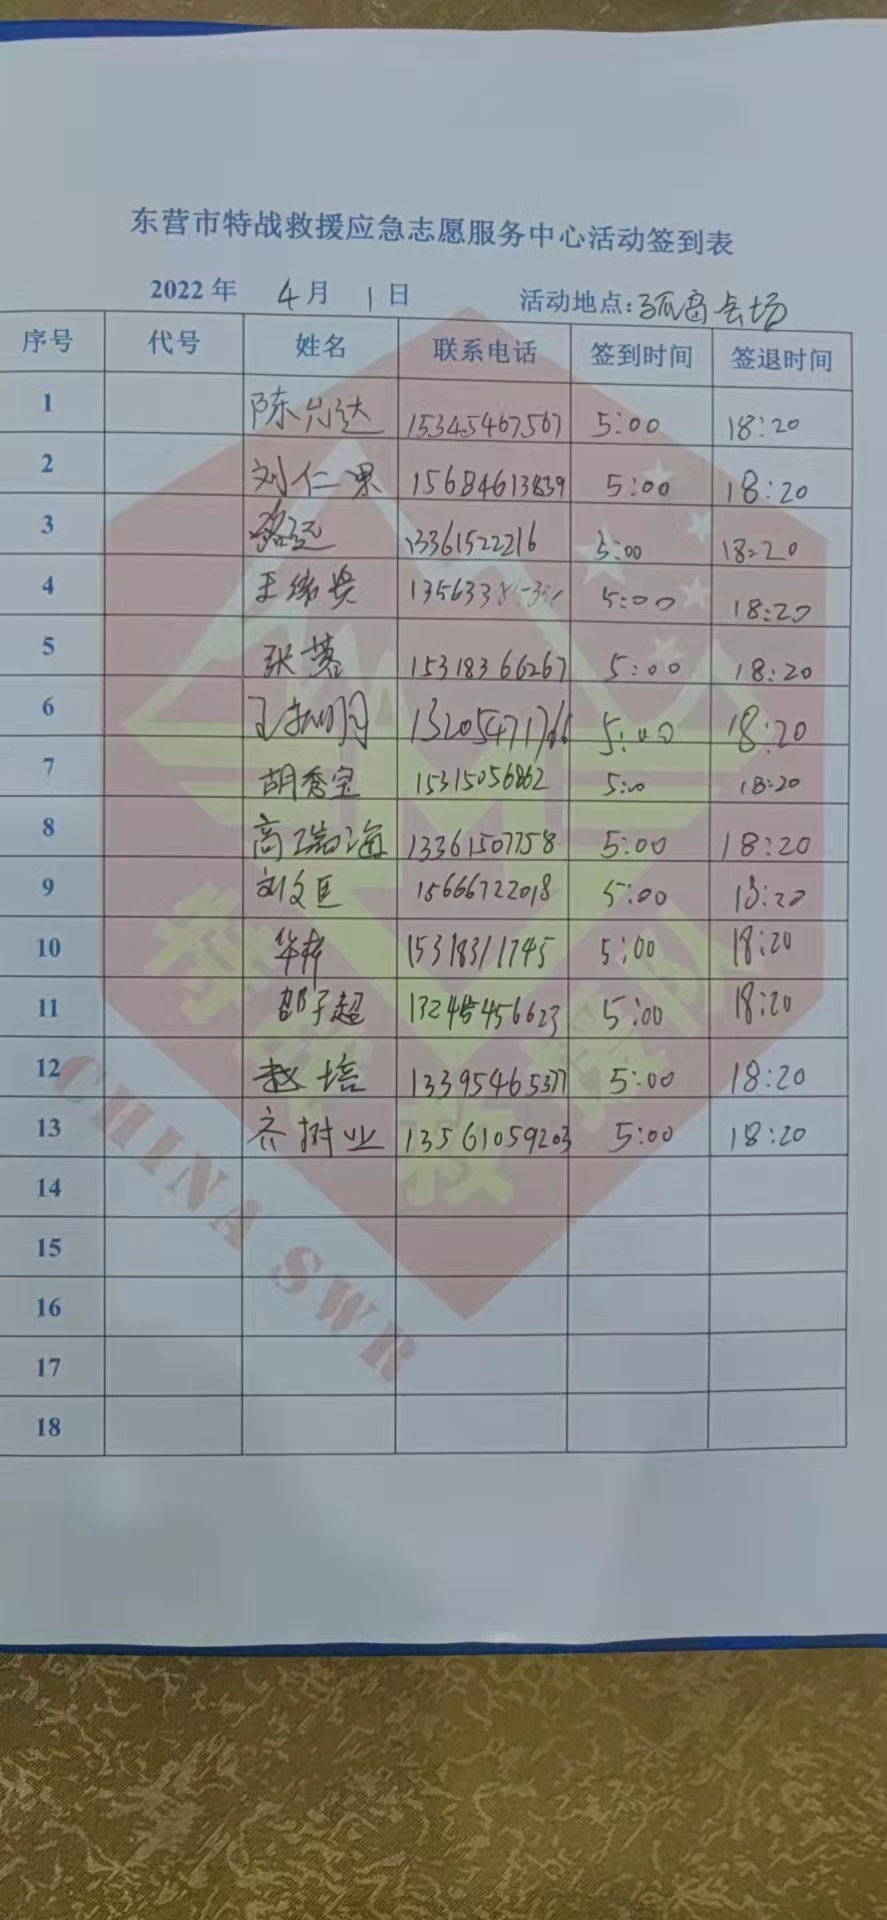 东营市特战救援应急志愿服务中心活动签到表
2022 年 4 月 1 日 活动地点:孤岛会场
序号 代号 姓名 联系电话 签到时间 签退时间
1 陈 15345467567 5:00 18:20
2 刘仁果 15684613839 5:00 18:20
3 13361522216 5:00 18:20
4 王 5:00 18:20
5 张慧 15318366267 5:00 18:20
6 5:00 18:20
7 胡秀宝 15315056862 5:00 18:20
8 高瑞海 13361507758 5:00 18:20
9 刘文臣 15666722018 5:00 18:20
10 15318311745 5:00 18:20
11 邵子超 5:00 18:20
12 赵培 13395465377 5:00 18:20
13 齐树业 13561059203 5:00 18:20
14
15
16
17
18
特战救援队
CHINA SWR